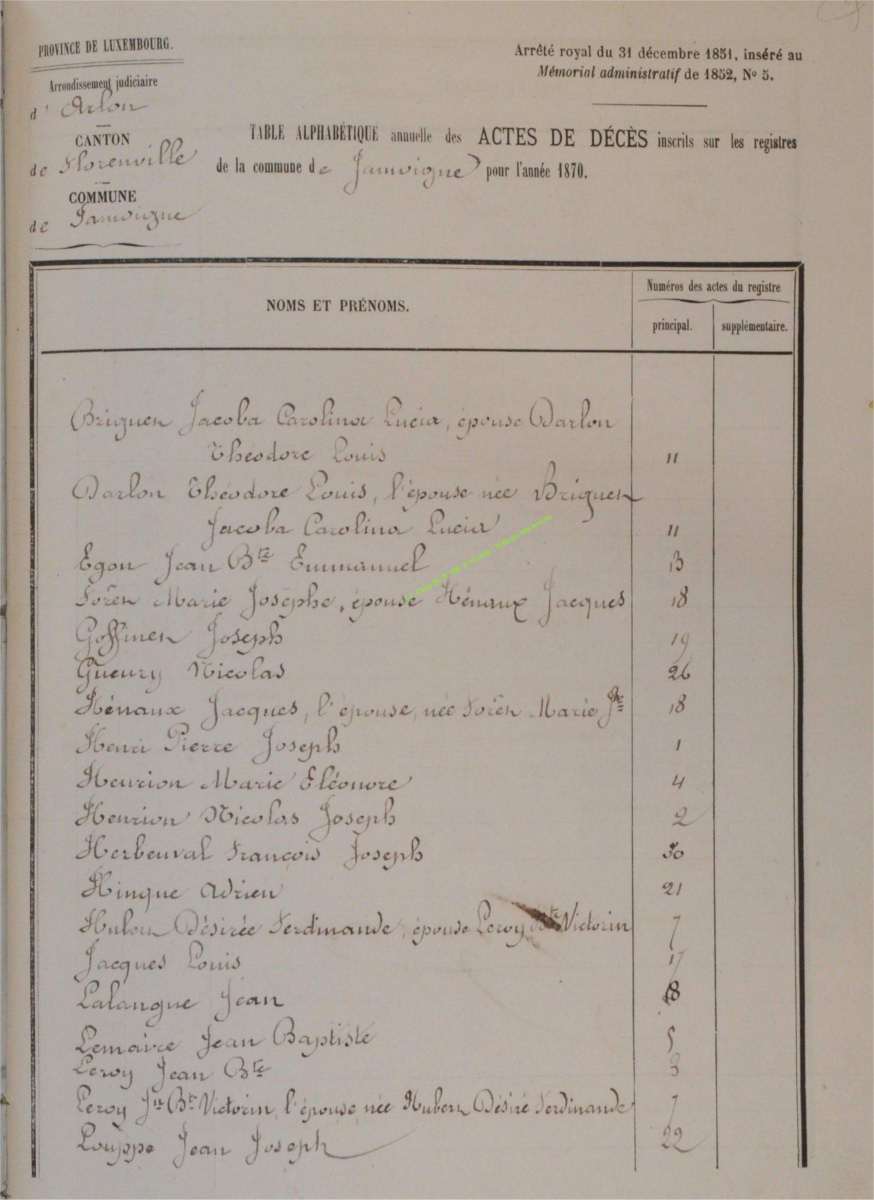 PROVINCE DE LUXEMBOURG.
Arrondissement judiciaire
d'Arlon
CANTON
de Florenville
COMMUNE
de Jamoigne
Arrêté royal du 31 décembre 1851, inséré au
Mémorial administratif de 1852, No 5.
TABLE ALPHABÉTIQUE annuelle des ACTES DE DÉCÈS inscrits sur les registres
de la commune de Jamoigne pour l'année 1870.
NOMS ET PRÉNOMS.
Numéros des actes du registre
principal.
supplémentaire.
Briquen Jacoba Carolina Lucia, épouse Darlon
Théodore Louis 11
Darlon Théodore Louis, l'épouse née Briquen
Jacoba Carolina Lucia 11
Egon Jean Bte Emmanuel 13
Marie Josèphe, épouse Hénaux Jacques 18
Goffinen Joseph 19
Gueury Nicolas 26
Hénaux Jacques, l'épouse, née Marie Jphe 18
Henri Pierre Joseph 1
Henrion Marie Eléonore 4
Henrion Nicolas Joseph 2
Herbeuval François Joseph 30
Hinque Adrien 21
Désirée Ferdinande, épouse Leroy Victorin 7
Jacques Louis 17
Lalangue Jean 8
Lemaire Jean Baptiste 5
Leroy Jean Bte 3
Leroy Jn Bte Victorin, l'épouse née Désiré Ferdinande 7
Louppe Jean Joseph 22